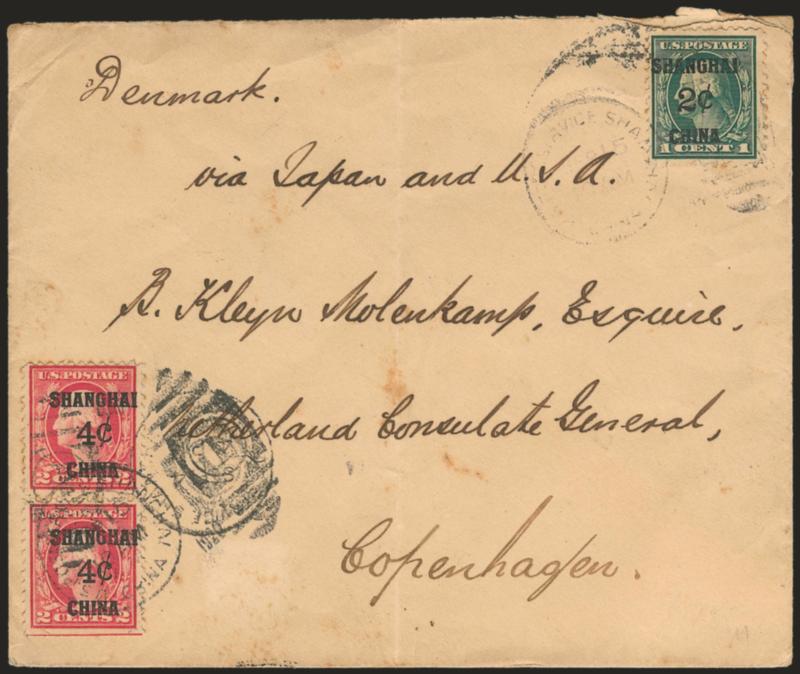 Denmark.
U.S. POSTAGE
SHANGHAI
2¢
CHINA
1 CENT 1
via Japan and U.S.A.
B. Kleyn Molenkamp, Esquire,
U.S. POSTAGE
SHANGHAI
4¢
CHINA
2 CENTS 2
Netherland Consulate General,
SHANGHAI
4¢
CHINA
2 CENTS 2
Copenhagen.